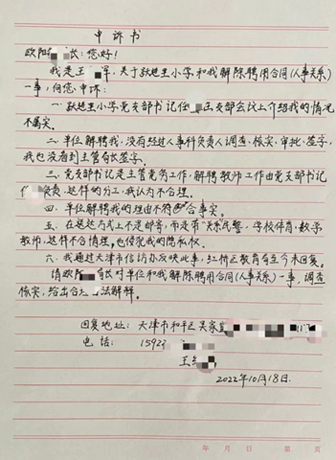 申诉书
欧阳 长：您好！
我是王 军，关于 小学，和我解除聘用合同（人事关系）
一事，向您申诉：
一. 小学党支部书记任 支部会议上介绍我的情况
不属实。
二. 单位解聘我，没有经过人事科负责人调查、核实、审批、签字，
我也没看到主管 长签字。
三. 党支部书记是主管党务工作，解聘教师工作由党支部书记
负责，这样的分工，我认为不合理。
四. 单位解聘我的理由不符合事实。
五. 在送达方式上不是邮寄，而是有“ 民警，学校体育、数学
教师，这样不合情理，也侵犯我的隐私权。
六. 我通过天津市信访办反映此事，红桥区教育局至今未回复。
请欧 长对单位和我解除聘用合同（人事关系）一事，调查
核实，给出合 法解释。
回复地址：天津市和平区吴家
电话：1592
王
2022年10月18日.
年 月 日 第 页